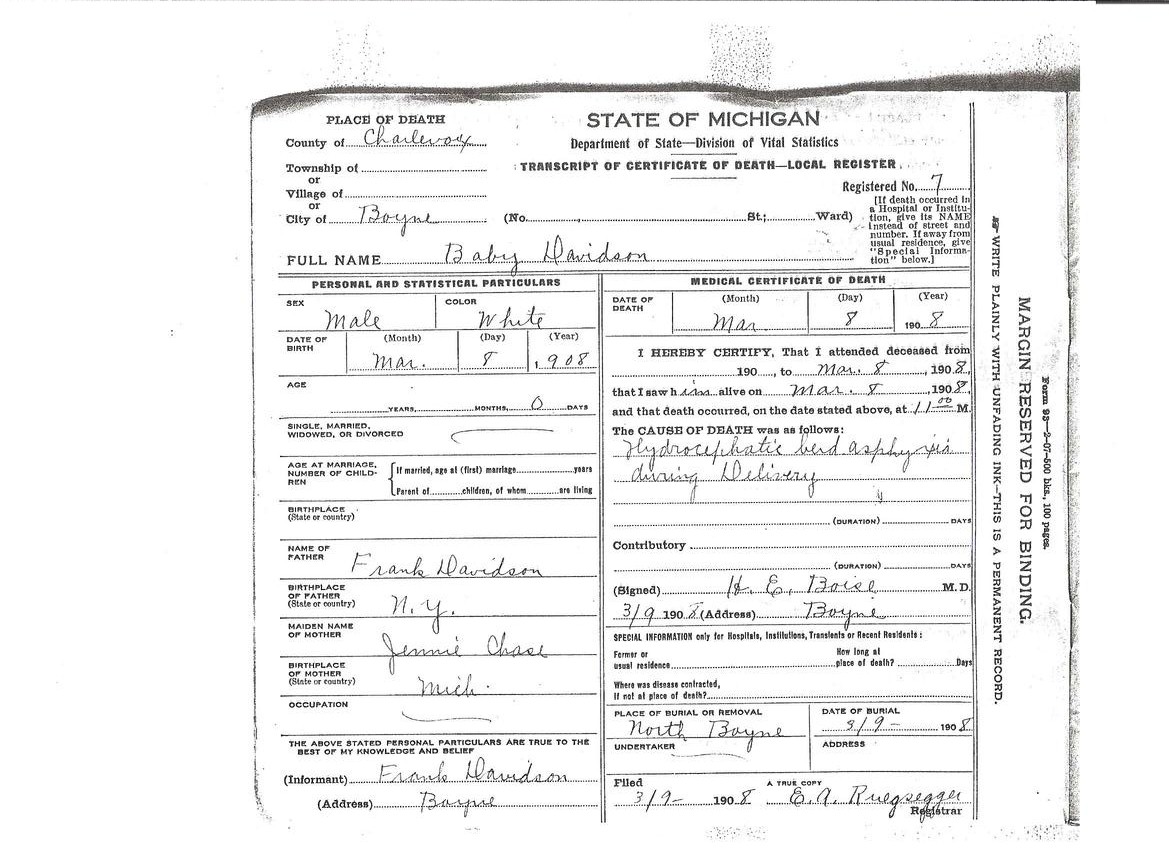 PLACE OF DEATH
County of Charlevoix
Township of
or
Village of
or
City of Boyne
STATE OF MICHIGAN
Department of State—Division of Vital Statistics
TRANSCRIPT OF CERTIFICATE OF DEATH—LOCAL REGISTER
Registered No. 7
(No. St.; Ward)
[If death occurred in
a Hospital or Institu-
tion, give its NAME
instead of street and
number. If away from
usual residence, give
"Special Informa-
tion" below.]
FULL NAME Baby Davidson
PERSONAL AND STATISTICAL PARTICULARS
SEX
Male
COLOR
White
DATE OF
BIRTH
(Month) (Day) (Year)
Mar. 8, 1908
AGE
YEARS, MONTHS, 0 DAYS
SINGLE, MARRIED,
WIDOWED, OR DIVORCED
AGE AT MARRIAGE,
NUMBER OF CHILD-
REN
If married, age at (first) marriage years
Parent of children, of whom are living
BIRTHPLACE
(State or country)
NAME OF
FATHER
Frank Davidson
BIRTHPLACE
OF FATHER
(State or country)
N. Y.
MAIDEN NAME
OF MOTHER
Jennie Chase
BIRTHPLACE
OF MOTHER
(State or country)
Mich.
OCCUPATION
THE ABOVE STATED PERSONAL PARTICULARS ARE TRUE TO THE
BEST OF MY KNOWLEDGE AND BELIEF
(Informant) Frank Davidson
(Address) Boyne
MEDICAL CERTIFICATE OF DEATH
DATE OF
DEATH
(Month) (Day) (Year)
Mar 8 1908
I HEREBY CERTIFY, That I attended deceased from
190 , to Mar. 8, 1908,
that I saw him alive on Mar. 8, 1908,
and that death occurred, on the date stated above, at 11 00 M.
The CAUSE OF DEATH was as follows:
Hydrocephatic asphyxia
during Delivery
(DURATION) DAYS
Contributory
(DURATION) DAYS
(Signed) H. E. Boise M.D.
3/9 1908 (Address) Boyne
SPECIAL INFORMATION only for Hospitals, Institutions, Transients or Recent Residents:
Former or
usual residence
How long at
place of death? Days
Where was disease contracted,
if not at place of death?
PLACE OF BURIAL OR REMOVAL
North Boyne
DATE OF BURIAL
3/9- 1908
UNDERTAKER
ADDRESS
Filed
3/9- 1908
A TRUE COPY
E. A. Ruegsegger
Registrar
WRITE PLAINLY WITH UNFADING INK—THIS IS A PERMANENT RECORD.
MARGIN RESERVED FOR BINDING.
Form 98—2-07-500 bks., 100 pages.